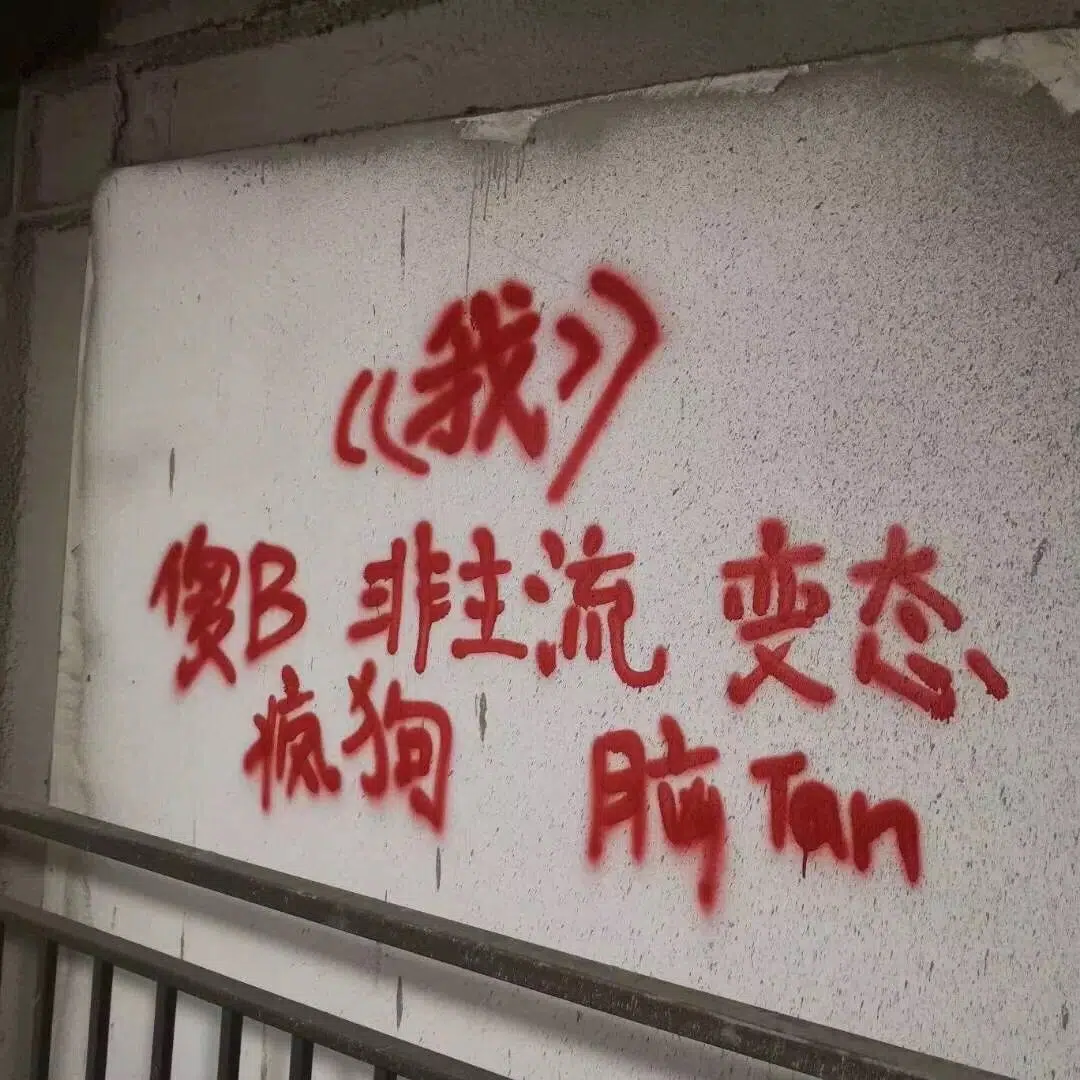 《我》
傻B 非主流 变态
疯狗 脑Tan